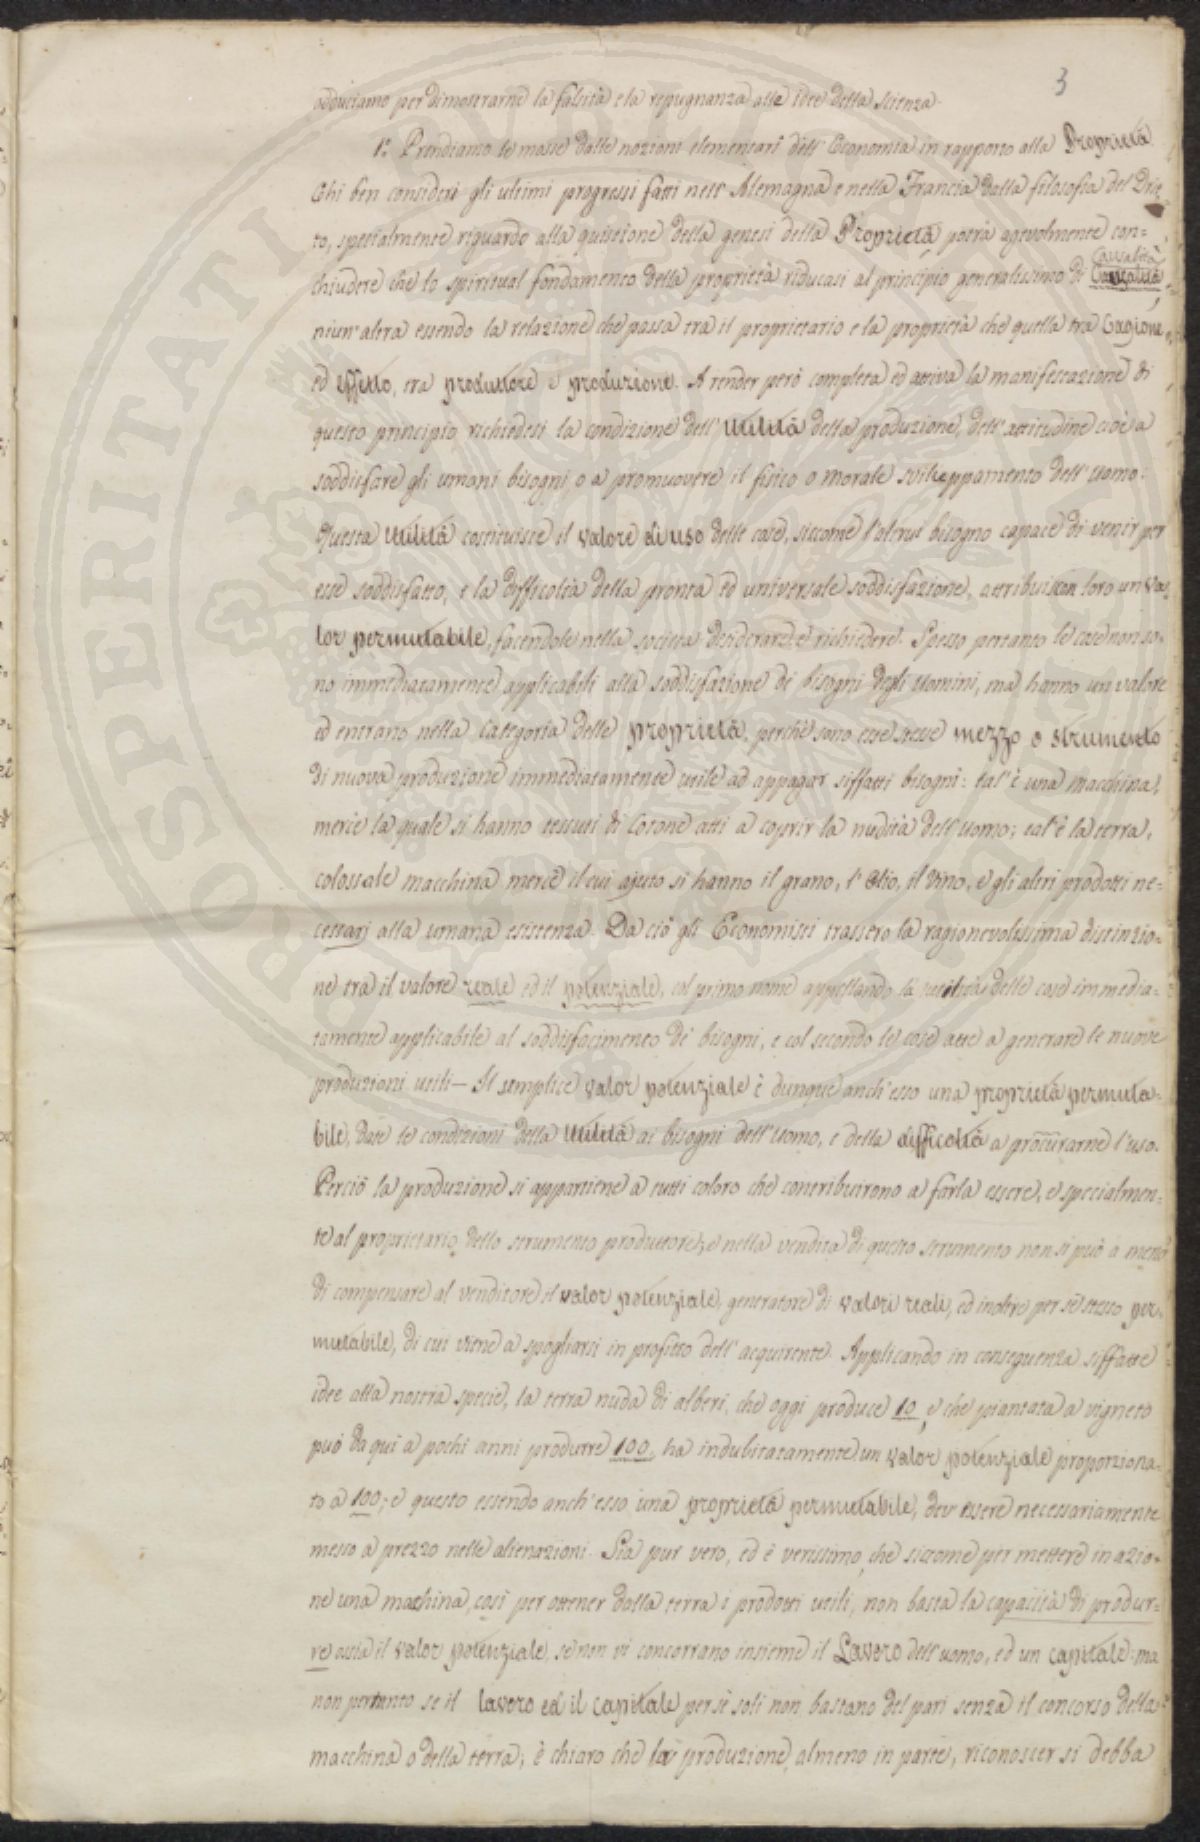 3
adduciamo per dimostrarne la falsità e la repugnanza alle idee della scienza.
1.° Prendiamo le mosse dalle nozioni elementari dell'Economia in rapporto alla Proprietà.
Chi ben consideri gli ultimi progressi fatti nell'Alemagna e nella Francia dalla filosofia del Drit-
to, specialmente riguardo alla quistione della genesi della Proprietà potrà agevolmente con=
chiudere che lo spiritual fondamento della proprietà riducasi al principio generalissimo di Causalità
niun'altra essendo la relazione che passa tra il proprietario e la proprietà che quella tra Cagione
ed effetto, tra produttore e produzione. A render però completa ed attiva la manifestazione di
questo principio richiedesi la condizione dell'utilità della produzione, dell'attitudine cioè a
soddisfare gli umani bisogni, o a promuovere il fisico o morale sviluppamento dell'uomo:
Questa utilità costituisce il valore di uso delle cose, siccome l'altrui bisogno capace di venir per
esse soddisfatto, e la difficoltà della pronta ed universale soddisfazione, attribuiscon loro un va-
lor permutabile, facendole nella società desiderare, e richiedere. Spesso pertanto le cose non so-
no immediatamente applicabili alla soddisfazione de' bisogni degli uomini, ma hanno un valore
ed entrano nella categoria delle proprietà, perchè sono esse stesse mezzo o strumento
di nuova produzione immediatamente utile ad appagar siffatti bisogni: tal'è una macchina,
mercè la quale si hanno tessuti di Cotone atti a coprir la nudità dell'uomo; tal'è la terra,
colossale macchina mercè il cui ajuto si hanno il grano, l'Olio, il Vino, e gli altri prodotti ne=
cessarj alla umana esistenza. Da ciò gli Economisti trassero la ragionevolissima distinzio-
ne tra il valore reale ed il potenziale, col primo nome appellando la utilità delle cose immedia=
tamente applicabile al soddisfacimento de' bisogni, e col secondo le cose atte a generare le nuove
produzioni utili — Il semplice valor potenziale è dunque anch'esso una proprietà permuta-
bile, date le condizioni della utilità ai bisogni dell'Uomo, e della difficoltà a procurarne l'uso.
Perciò la produzione si appartiene a tutti coloro che contribuirono a farla essere, e specialmen-
te al proprietario dello strumento produttore; e nella vendita di questo strumento non si può a meno
di compensare al venditore il valor potenziale, generatore di valori reali, ed inoltre per sè stesso per-
mutabile, di cui viene a spogliarsi in profitto dell'acquirente. Applicando in conseguenza siffatte
idee alla nostra specie, la terra nuda di alberi, che oggi produce 10, e che piantata a vigneto
può da qui a pochi anni produrre 100, ha indubitatamente un valor potenziale proporziona-
to a 100; e questo essendo anch'esso una proprietà permutabile, dev'essere necessariamente
messo a prezzo nelle alienazioni. Sia pur vero, ed è verissimo, che siccome per mettere in azio-
ne una machina, così per ottener dalla terra i prodotti utili, non basta la capacità di produr-
re ossia il valor potenziale, se non vi concorrano insieme il Lavoro dell'uomo, ed un capitale: ma
non pertanto se il lavoro ed il capitale per sè soli non bastano del pari senza il concorso della
macchina o della terra; è chiaro che la produzione, almeno in parte, riconoscer si debba
PROSPERITATI PUBLICAE